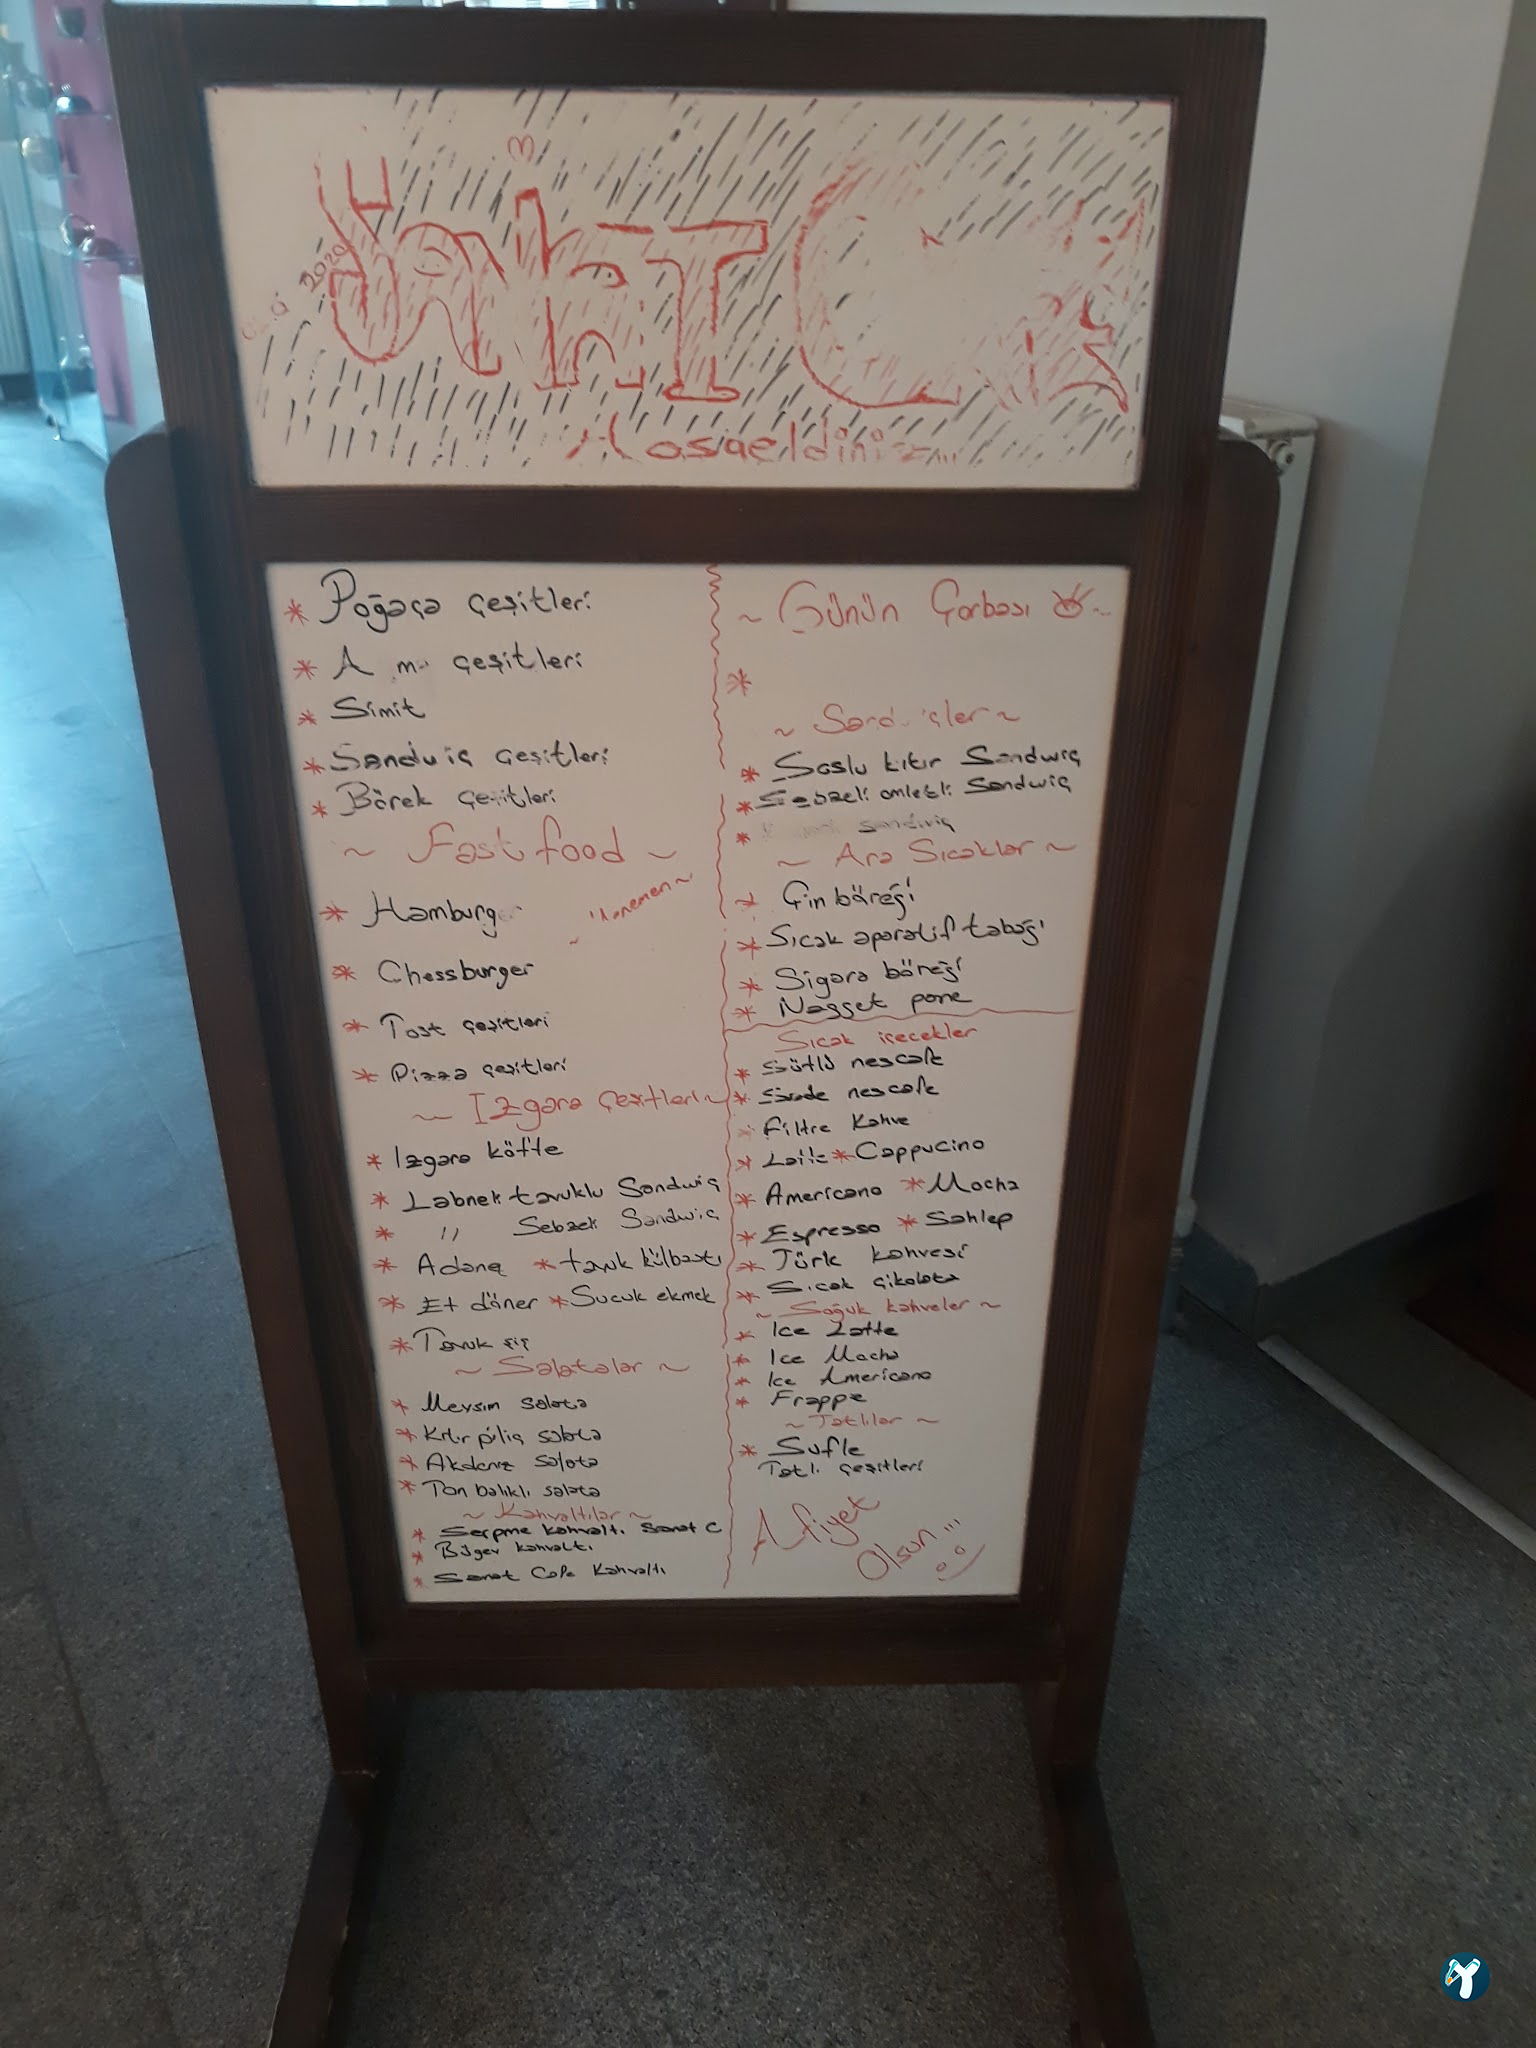 2020
Hoşgeldiniz...
* Poğaça çeşitleri
* çeşitleri
* Simit
* Sandwiç çeşitleri
* Börek çeşitleri
~ Fast food ~
* Hamburger
~ Menemen ~
* Chessburger
* Tost çeşitleri
* Pizza çeşitleri
~ Izgara Çeşitleri ~
* Izgara köfte
* Labneli tavuklu Sandwiç
* " Sebzeli Sandwiç
* Adana * tavuk külbastı
* Et döner * Sucuk ekmek
* Tavuk şiş
~ Salatalar ~
* Mevsim salata
* Kıtır piliç salata
* Akdeniz salata
* Ton balıklı salata
~ Kahvaltılar ~
* Serpme kahvaltı Sanat C
* kahvaltı
* Sanat Cafe Kahvaltı
~ Günün Çorbası ~
*
~ Sandwiçler ~
* Soslu kıtır Sandwiç
* Sebzeli omletli Sandwiç
* sandiviç
~ Ara Sıcaklar ~
* Çin böreği
* Sıcak aparatif tabağı
* Sigara böreği
* Nagget pane
Sıcak içecekler
* Sütlü nescafe
* Sade nescafe
* Filtre Kahve
* Latte * Cappucino
* Americano * Mocha
* Espresso * Sahlep
* Türk kahvesi
* Sıcak çikolata
~ Soğuk kahveler ~
* Ice Latte
* Ice Mocha
* Ice Americano
* Frappe
~ Tatlılar ~
* Sufle
Tatlı çeşitleri
Afiyet
Olsun...